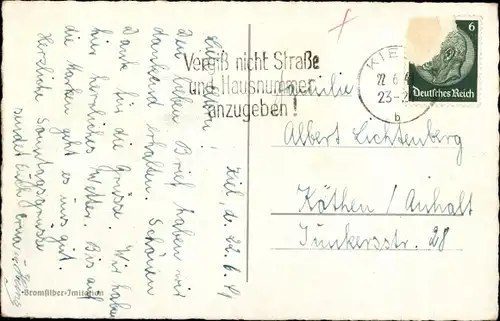 Vergiß nicht Straße
und Hausnummer
anzugeben!
KIEL
22.6.
23-2
b
6
Deutsches Reich
Familie
Albert Lichtenberg
Köthen / Anhalt
Junkersstr. 28
Kiel, d. 22.6.41
Ihr Lieben!
Den lieben Brief haben wir
dankend erhalten. Schönen
Dank für die Grüsse. Wir haben
hier herrliches Wetter. Bis auf
die Marken geht es uns gut.
Herzliche Sonntagsgrüsse
sendet Euch Erna u.
Bromsilber-Imitation